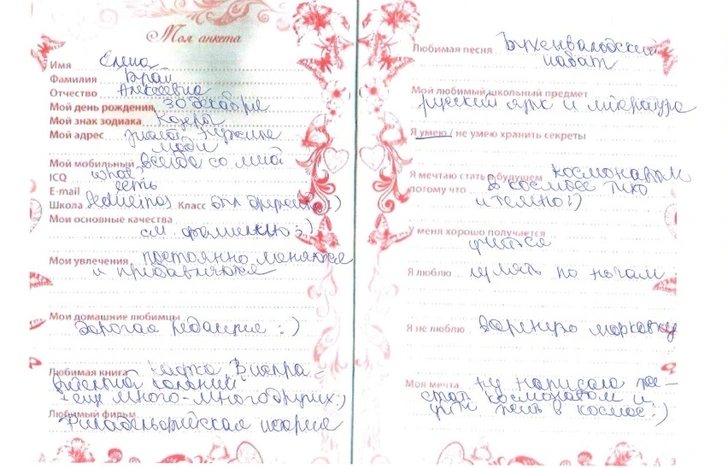 Моя анкета
Имя Елена
Фамилия
Отчество Алексеевна
Мой день рождения 30 декабря
Мой знак зодиака Козерог
Мой адрес знают нужные
люди
Мой мобильный всегда со мной
ICQ what?
E-mail есть
Школа Класс
Мои основные качества
см. фамилию :)
Мои увлечения постоянно меняются
и прибавляются
Мои домашние любимцы
Дорогая редакция :)
Любимая книга
+ еще много-много других :)
Любимый фильм
Филадельфийская история
Любимая песня Бухенвальдский
набат
Мой любимый школьный предмет
русский язык и литература
Я умею / не умею хранить секреты
Я мечтаю стать в будущем космонавтом
потому что в космосе тихо
и темно :)
У меня хорошо получается
учиться
Я люблю гулять по ночам
Я не люблю вареную морковку
Моя мечта ну написала же -
стать космонавтом и
в космос :)